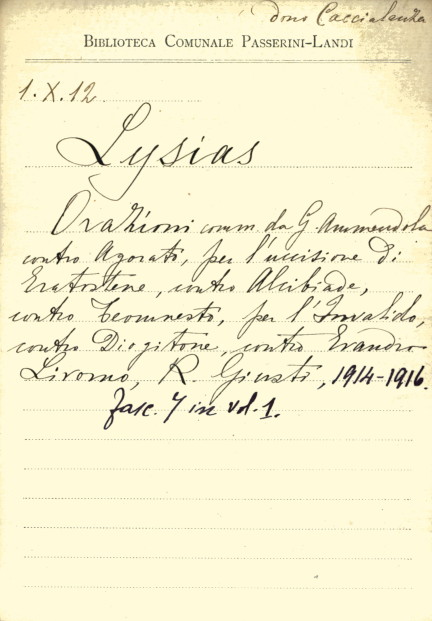 dono Caccialanza
BIBLIOTECA COMUNALE PASSERINI-LANDI
1.X.12
Lysias
Orazioni comm da G. Ammendola
contro Agorato, per l'uccisione di
Eratostene, contro Alcibiade,
contro Teomnesto, per l'Invalido,
contro Diogitone, contro Evandro
Livorno, R. Giusti, 1914-1916.
fasc. 7 in vol. 1.